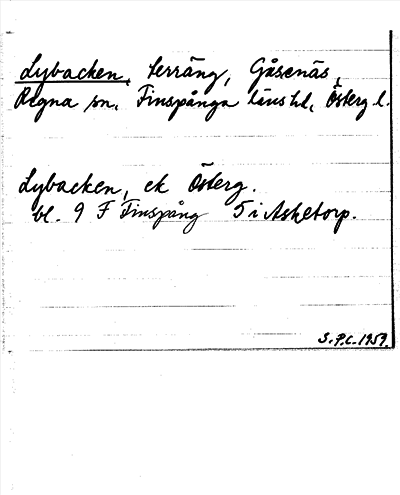 Lybacken, terräng, Gåsenäs,
Regna sn, Finspånga läns hd, Österg l.
Lybacken, ek Österg.
bl. 9 F Finspång 5 i Asketorp.
S.P.C. 1959.